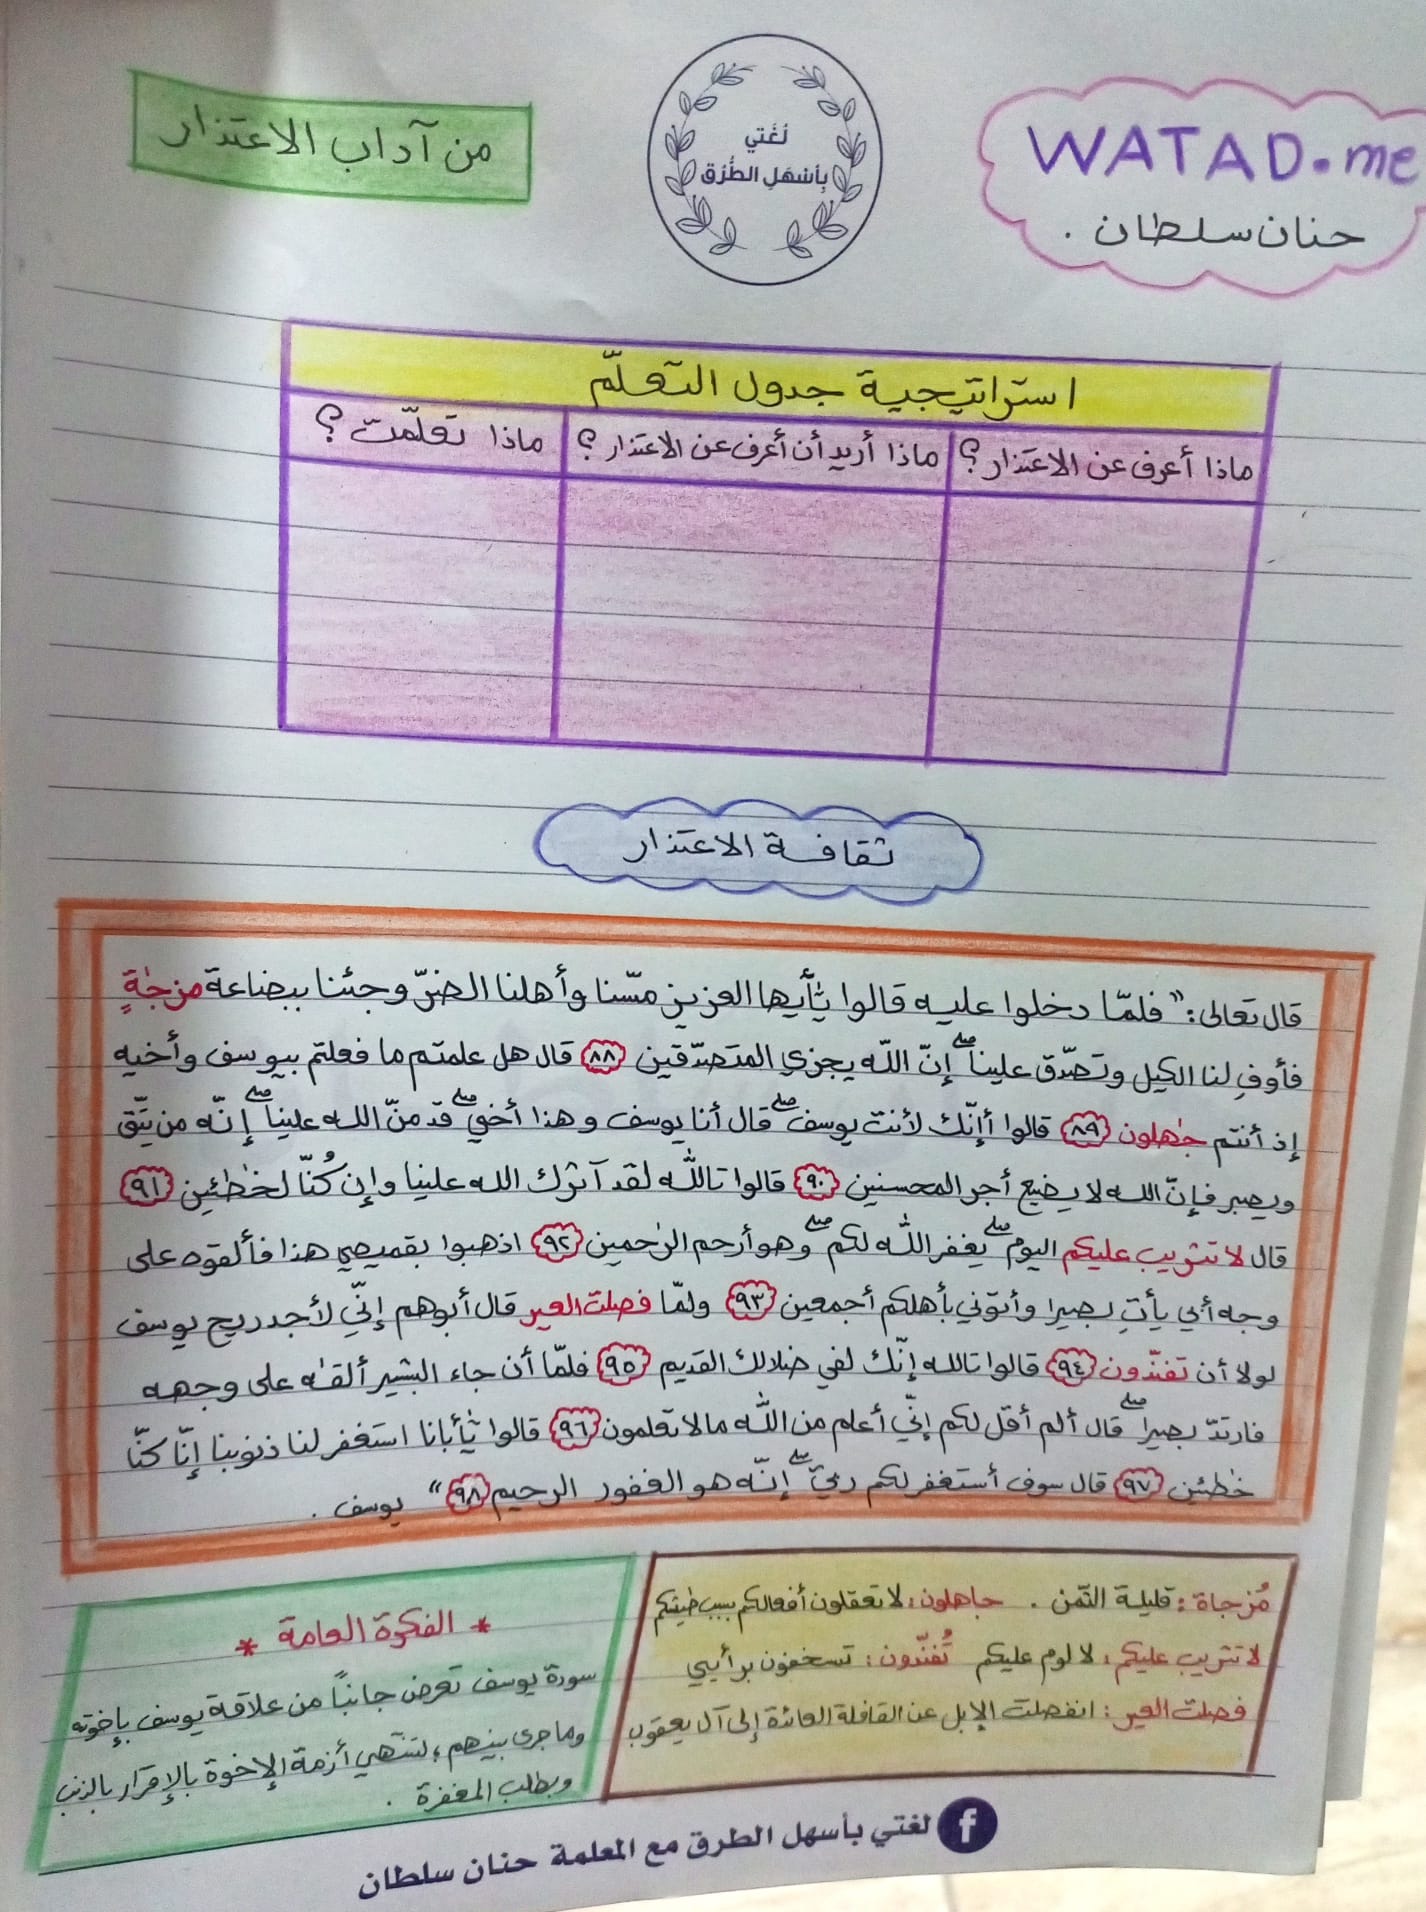 WATAD.me
حنان سلطان .
لُغَتي
بِأسْهَلِ الطُّرُق
من آداب الاعتذار
استراتيجية جدول التعلّم
ماذا أعرف عن الاعتذار؟
ماذا أريد أن أعرف عن الاعتذار؟
ماذا تعلّمت؟
ثقافة الاعتذار
قال تعالى: "فلمّا دخلوا عليه قالوا يٰأيها العزيز مسّنا وأهلنا الضرّ وجئنا ببضاعة مزجٰةٍ
فأوفِ لنا الكيل وتصدّق علينا ۖ إنّ اللّه يجزي المتصدّقين ٨٨ قال هل علمتم ما فعلتم بيوسف وأخيه
إذ أنتم جٰهلون ٨٩ قالوا أإنّك لأنت يوسف ۖ قال أنا يوسف وهذا أخي ۖ قد منّ الله علينا ۖ إنّه من يتّق
ويصبر فإنّ الله لا يضيع أجر المحسنين ٩٠ قالوا تاللّه لقد آثرك الله علينا وإن كُنّا لخٰطئين ٩١
قال لا تثريب عليكم اليوم ۖ يغفر اللّه لكم ۖ وهو أرحم الرٰحمين ٩٢ اذهبوا بقميصي هذا فألقوه على
وجه أبي يأتِ بصيرا وأتوني بأهلكم أجمعين ٩٣ ولمّا فصلت العير قال أبوهم إنّي لأجد ريح يوسف
لولا أن تفنّدون ٩٤ قالوا تالله إنّك لفي ضلالك القديم ٩٥ فلمّا أن جاء البشير ألقٰه على وجهه
فارتدّ بصيرا ۖ قال ألم أقل لكم إنّي أعلم من اللّه ما لا تعلمون ٩٦ قالوا يٰأبانا استغفر لنا ذنوبنا إنّا كنّا
خٰطئين ٩٧ قال سوف أستغفر لكم ربيّ ۖ إنّه هو الغفور الرحيم ٩٨" يوسف .
مُزجاة: قليلة الثمن . جاهلون: لا تعقلون أفعالكم بسبب طيشكم
لا تثريب عليكم: لا لوم عليكم تُفنّدون: تسخفون برأيي
فصلت العير: انفصلت الإبل عن القافلة العائدة إلى آل يعقوب
* الفكرة العامة *
سورة يوسف تعرض جانبًا من علاقة يوسف بإخوته
وما جرى بينهم، لتنتهي أزمة الإخوة بالإقرار بالذنب
وبطلب المغفرة .
لغتي بأسهل الطرق مع المعلمة حنان سلطان